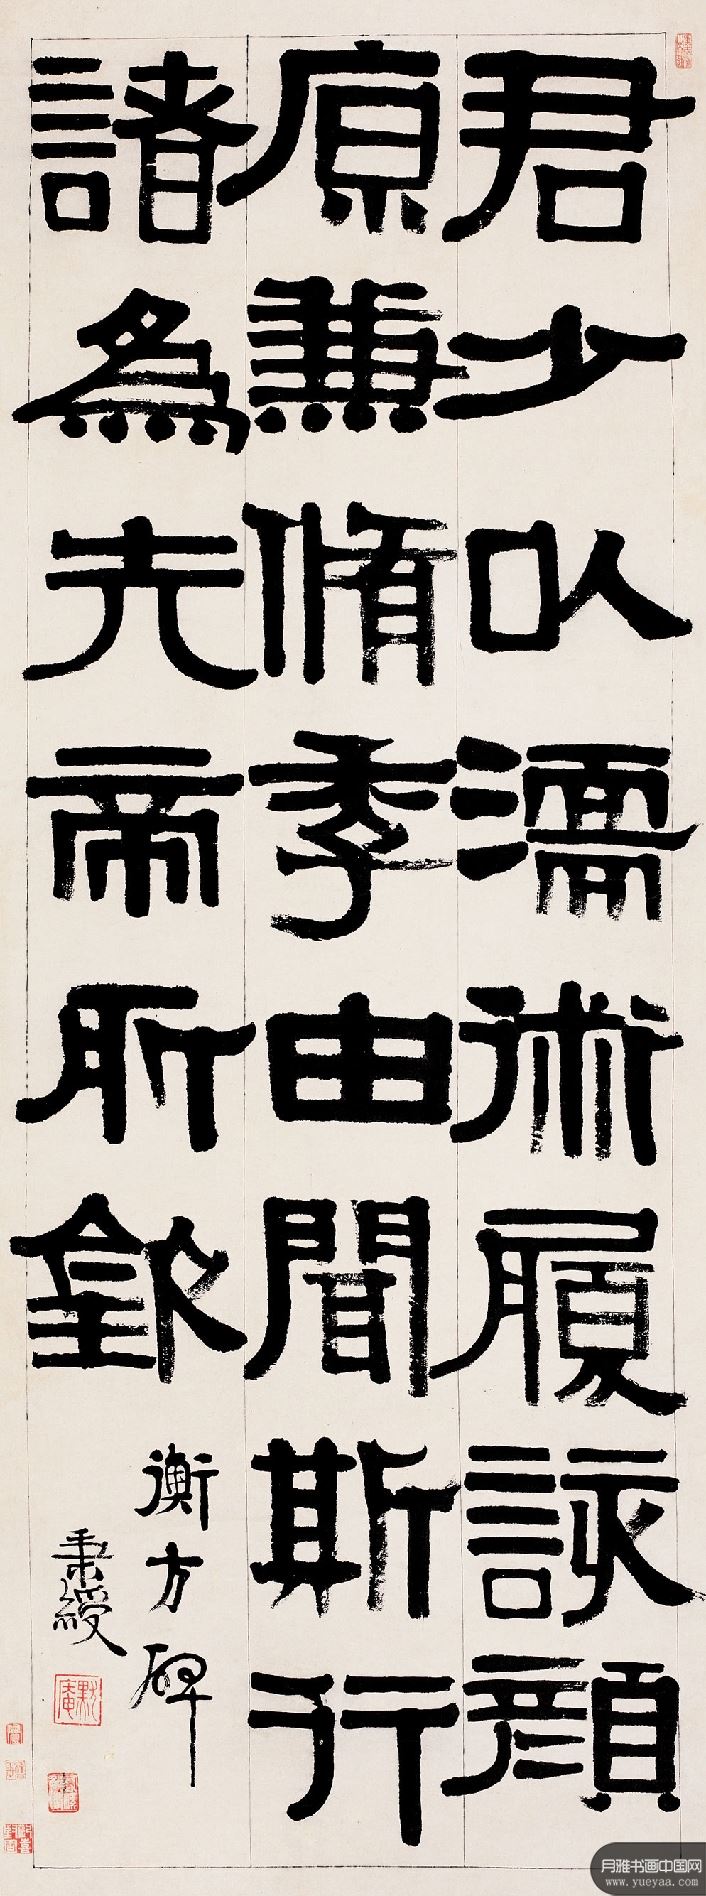 君少以濡術履該顏
原兼脩季由聞斯行
諸為先帝所欽
衡方碑
秉綬
默庵
月雅书画中国网
www.yueyaa.com